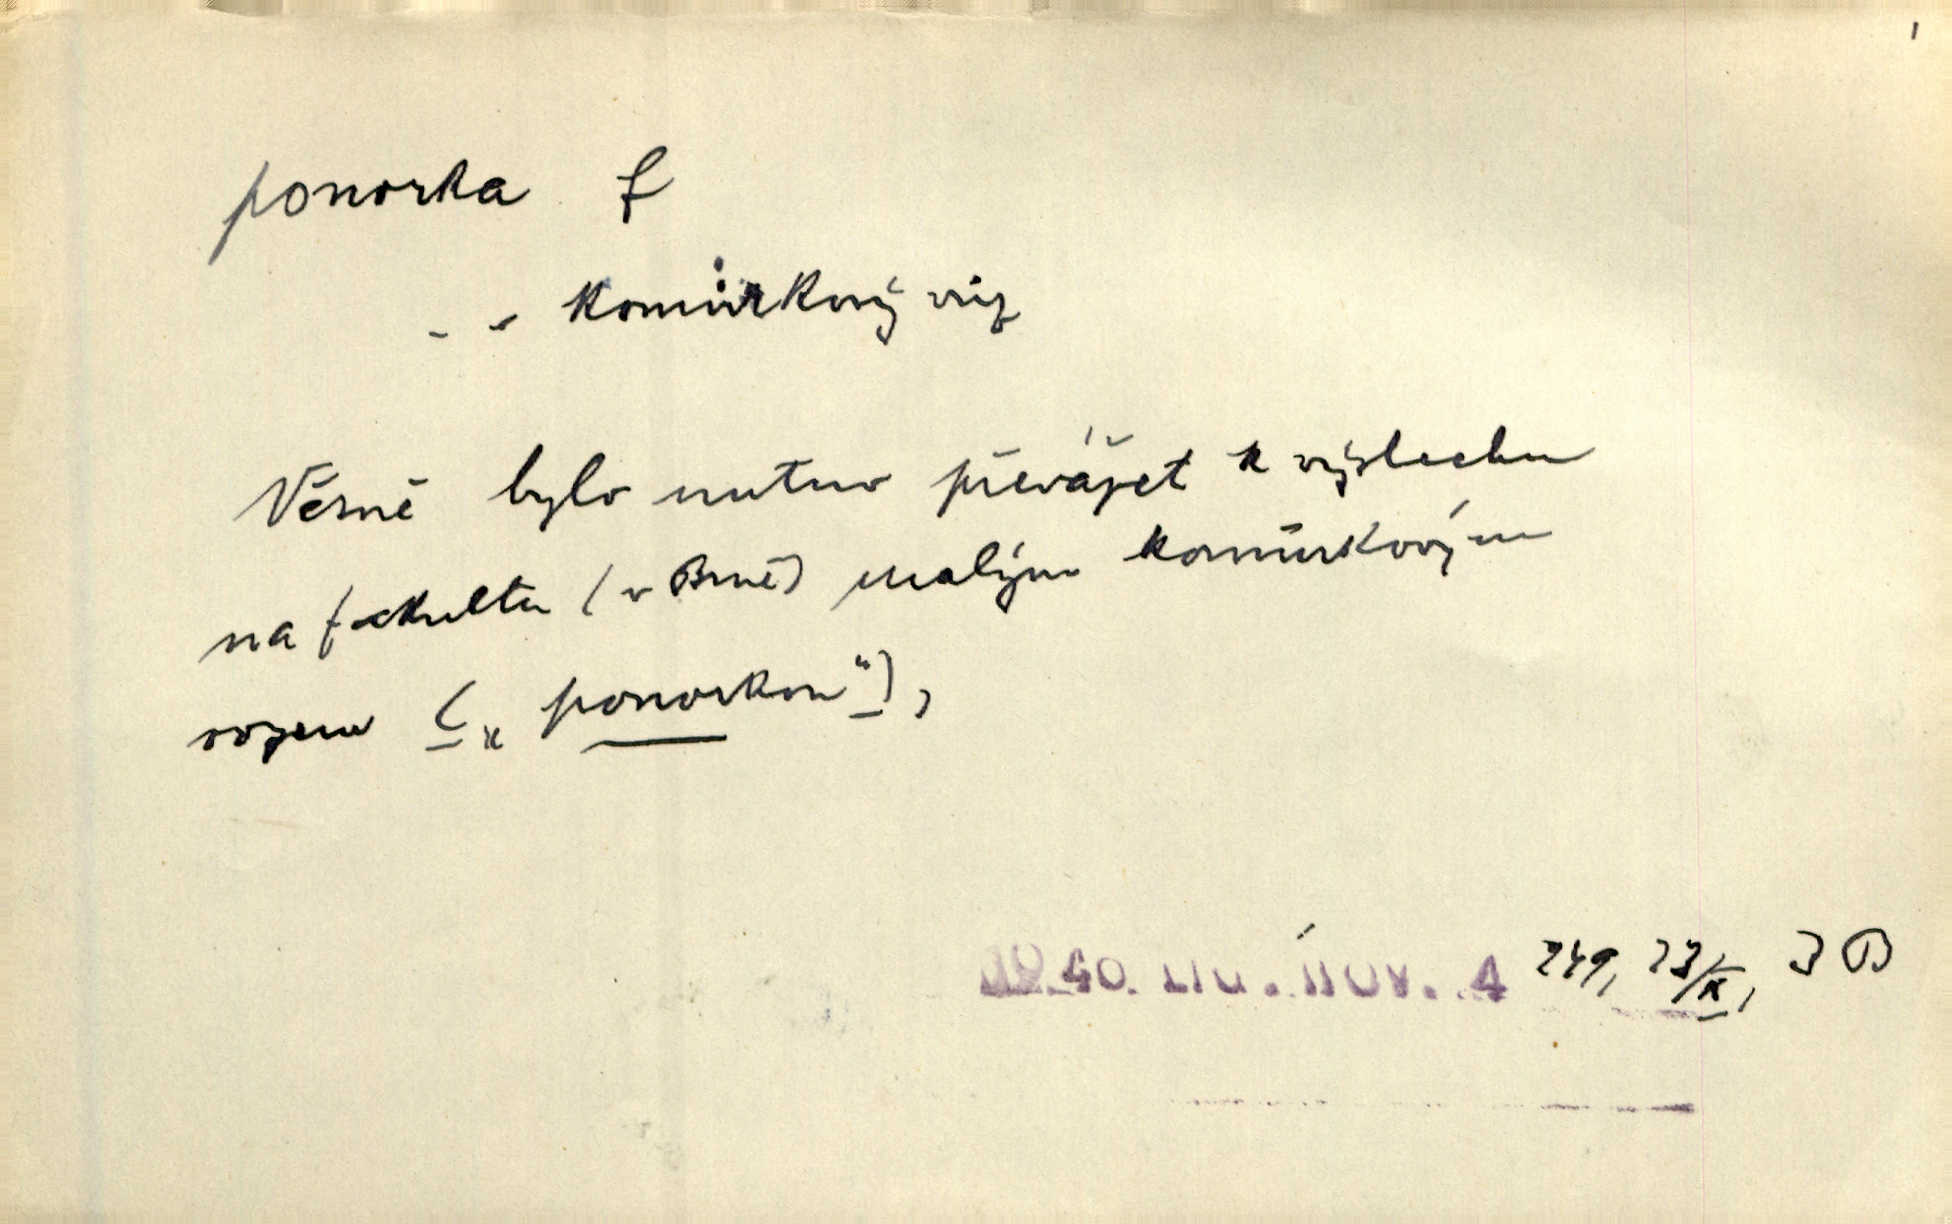 ponorka f
- - komůrkový vůz
Vězně bylo nutno převážet k výslechu
na fakultu (v Brně) malým komůrkovým
vozem („ponorkou“),
1940. Lid. nov. 4 249, 23/IX, 3 B